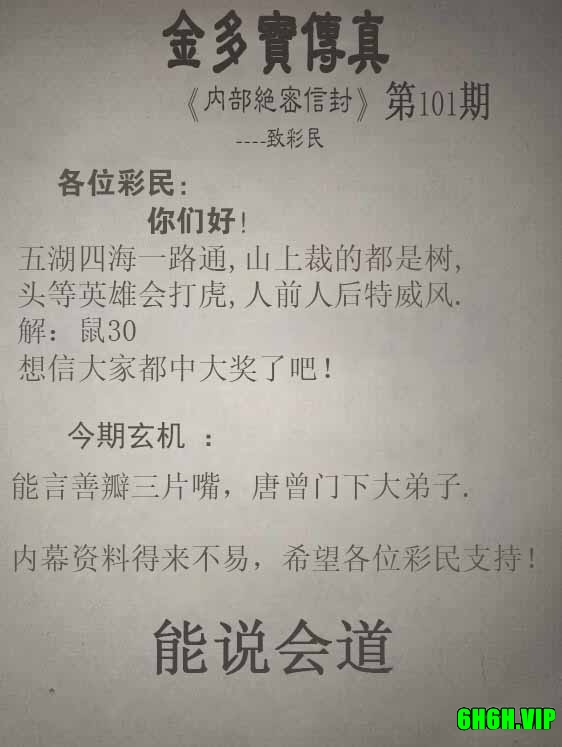 金多寶傳真
《内部絶密信封》第101期
----致彩民
各位彩民:
你们好!
五湖四海一路通,山上裁的都是树,
头等英雄会打虎,人前人后特威风.
解：鼠30
想信大家都中大奖了吧!
今期玄机 ：
能言善瓣三片嘴，唐曾门下大弟子.
内幕资料得来不易，希望各位彩民支持!
能说会道
6H6H.VIP